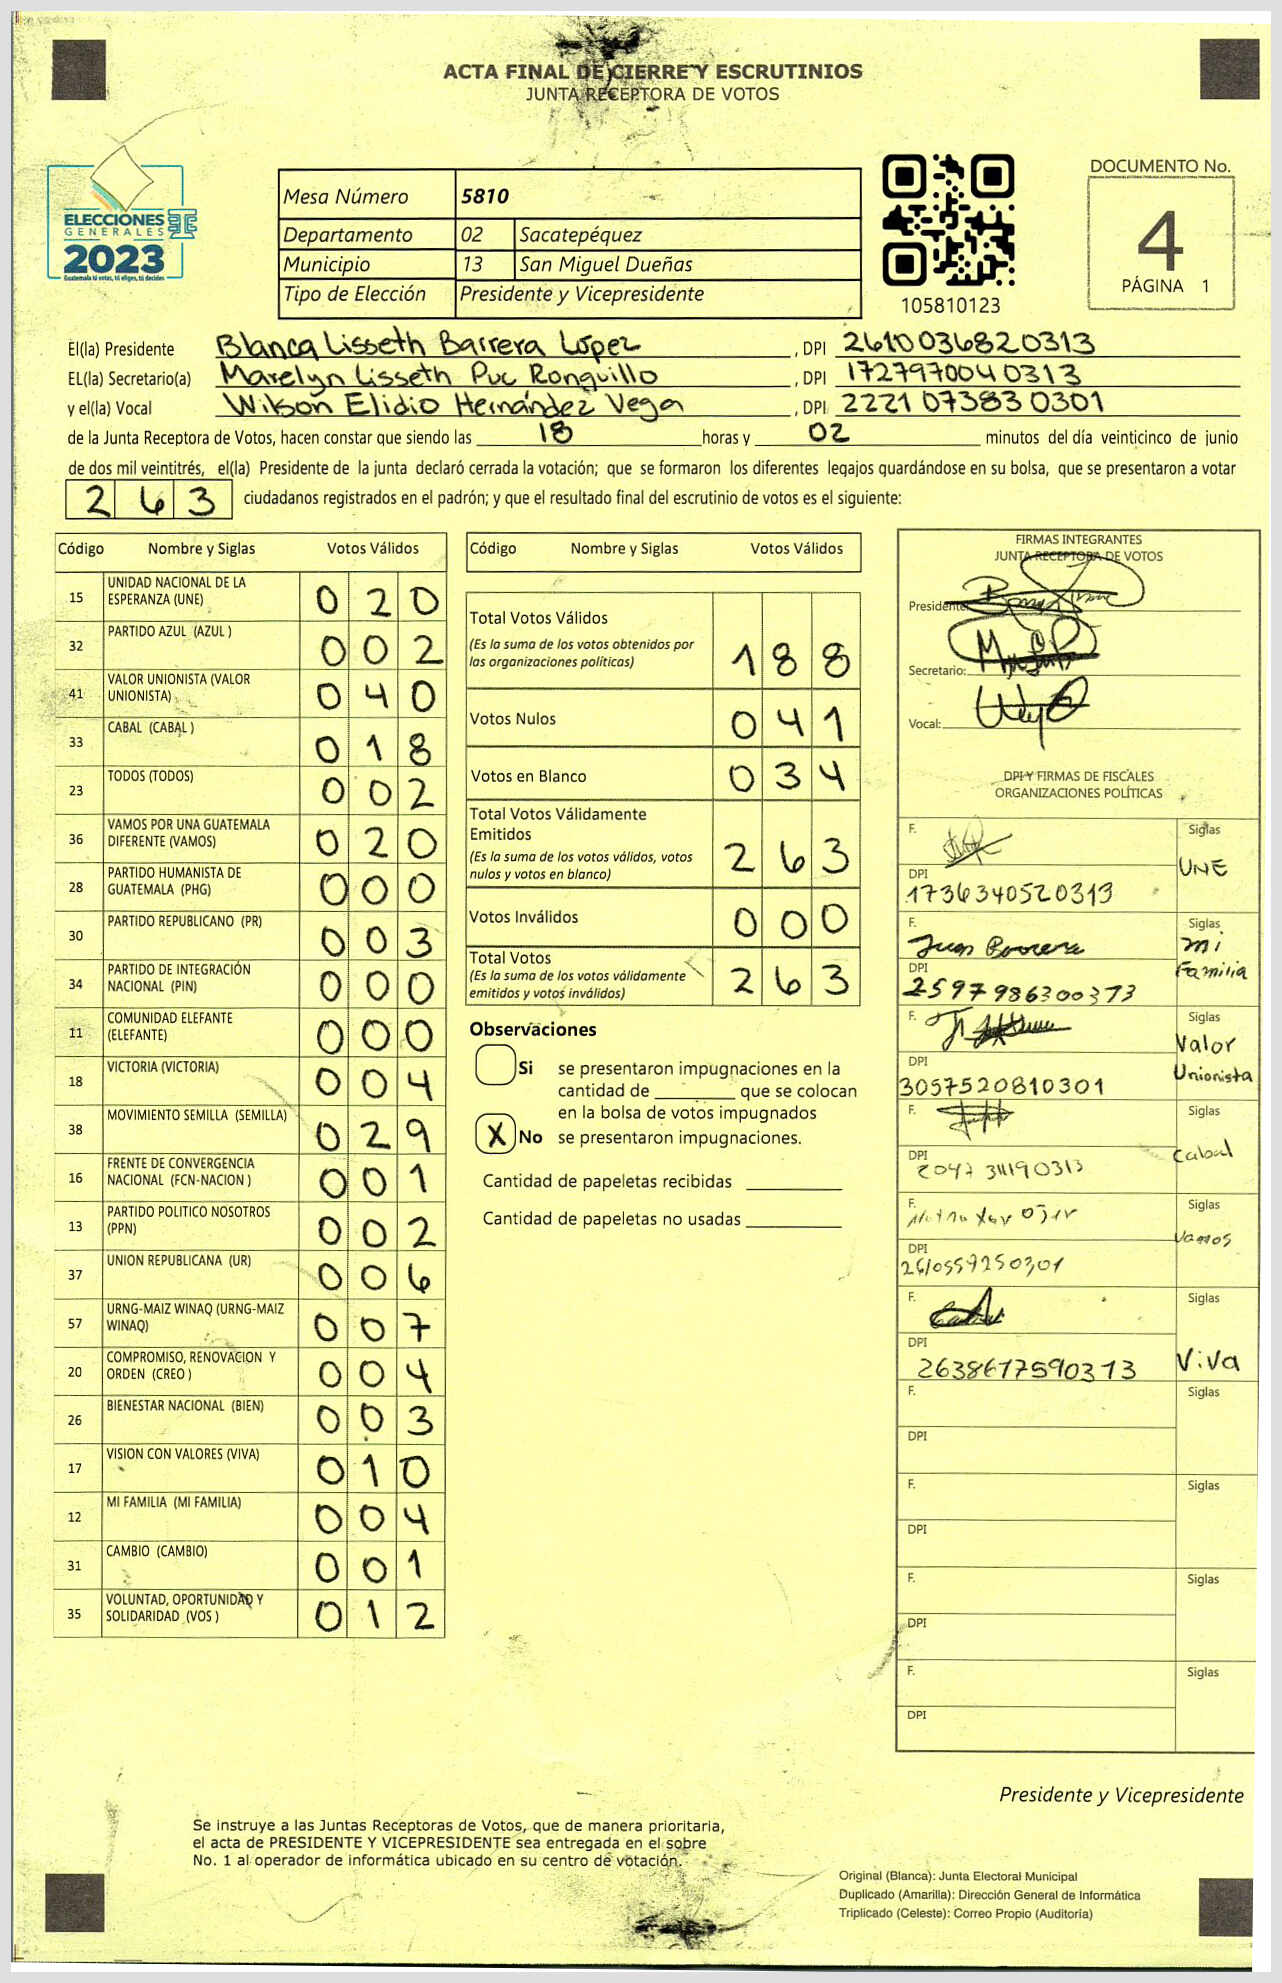 ACTA FINAL DE CIERRE Y ESCRUTINIOS
JUNTA RECEPTORA DE VOTOS
ELECCIONES
GENERALES
2023
Guatemala tú votas, tú eliges, tú decides
Mesa Número 5810
Departamento 02 Sacatepéquez
Municipio 13 San Miguel Dueñas
Tipo de Elección Presidente y Vicepresidente
105810123
DOCUMENTO No.
4
PÁGINA 1
El(la) Presidente Blanca Lisseth Barrera López, DPI 2610036820313
EL(la) Secretario(a) Marelyn Lisseth Puc Ronquillo, DPI 1727970040313
y el(la) Vocal Wilson Elidio Hernández Vega, DPI 2221073830301
de la Junta Receptora de Votos, hacen constar que siendo las 18 horas y 02 minutos del día veinticinco de junio
de dos mil veintitrés, el(la) Presidente de la junta declaró cerrada la votación; que se formaron los diferentes legajos guardándose en su bolsa, que se presentaron a votar
263 ciudadanos registrados en el padrón; y que el resultado final del escrutinio de votos es el siguiente:
Código Nombre y Siglas Votos Válidos
15 UNIDAD NACIONAL DE LA ESPERANZA (UNE) 020
32 PARTIDO AZUL (AZUL ) 002
41 VALOR UNIONISTA (VALOR UNIONISTA) 040
33 CABAL (CABAL ) 018
23 TODOS (TODOS) 002
36 VAMOS POR UNA GUATEMALA DIFERENTE (VAMOS) 020
28 PARTIDO HUMANISTA DE GUATEMALA (PHG) 000
30 PARTIDO REPUBLICANO (PR) 003
34 PARTIDO DE INTEGRACIÓN NACIONAL (PIN) 000
11 COMUNIDAD ELEFANTE (ELEFANTE) 000
18 VICTORIA (VICTORIA) 004
38 MOVIMIENTO SEMILLA (SEMILLA) 029
16 FRENTE DE CONVERGENCIA NACIONAL (FCN-NACION ) 001
13 PARTIDO POLITICO NOSOTROS (PPN) 002
37 UNION REPUBLICANA (UR) 006
57 URNG-MAIZ WINAQ (URNG-MAIZ WINAQ) 007
20 COMPROMISO, RENOVACION Y ORDEN (CREO ) 004
26 BIENESTAR NACIONAL (BIEN) 003
17 VISION CON VALORES (VIVA) 010
12 MI FAMILIA (MI FAMILIA) 004
31 CAMBIO (CAMBIO) 001
35 VOLUNTAD, OPORTUNIDAD Y SOLIDARIDAD (VOS ) 012
Código Nombre y Siglas Votos Válidos
Total Votos Válidos 188
(Es la suma de los votos obtenidos por
las organizaciones políticas)
Votos Nulos 041
Votos en Blanco 034
Total Votos Válidamente
Emitidos 263
(Es la suma de los votos válidos, votos
nulos y votos en blanco)
Votos Inválidos 000
Total Votos 263
(Es la suma de los votos válidamente
emitidos y votos inválidos)
Observaciones
Si se presentaron impugnaciones en la
cantidad de ________ que se colocan
en la bolsa de votos impugnados
X No se presentaron impugnaciones.
Cantidad de papeletas recibidas
Cantidad de papeletas no usadas
FIRMAS INTEGRANTES
JUNTA RECEPTORA DE VOTOS
Presidente:
Secretario:
Vocal:
DPI Y FIRMAS DE FISCALES
ORGANIZACIONES POLÍTICAS
F. Siglas
UNE
DPI
1736340520313
F. Juan Barrera Siglas
mi
Familia
DPI
2597986300313
F. Siglas
Valor
Unionista
DPI
3057520810301
F. Siglas
Cabal
DPI
F. Siglas
Vamos
DPI
2610557250301
F. Siglas
Viva
DPI
2638617590313
F. Siglas
DPI
F. Siglas
DPI
F. Siglas
DPI
F. Siglas
DPI
Presidente y Vicepresidente
Se instruye a las Juntas Receptoras de Votos, que de manera prioritaria,
el acta de PRESIDENTE Y VICEPRESIDENTE sea entregada en el sobre
No. 1 al operador de informática ubicado en su centro de votación.
Original (Blanca): Junta Electoral Municipal
Duplicado (Amarilla): Dirección General de Informática
Triplicado (Celeste): Correo Propio (Auditoría)